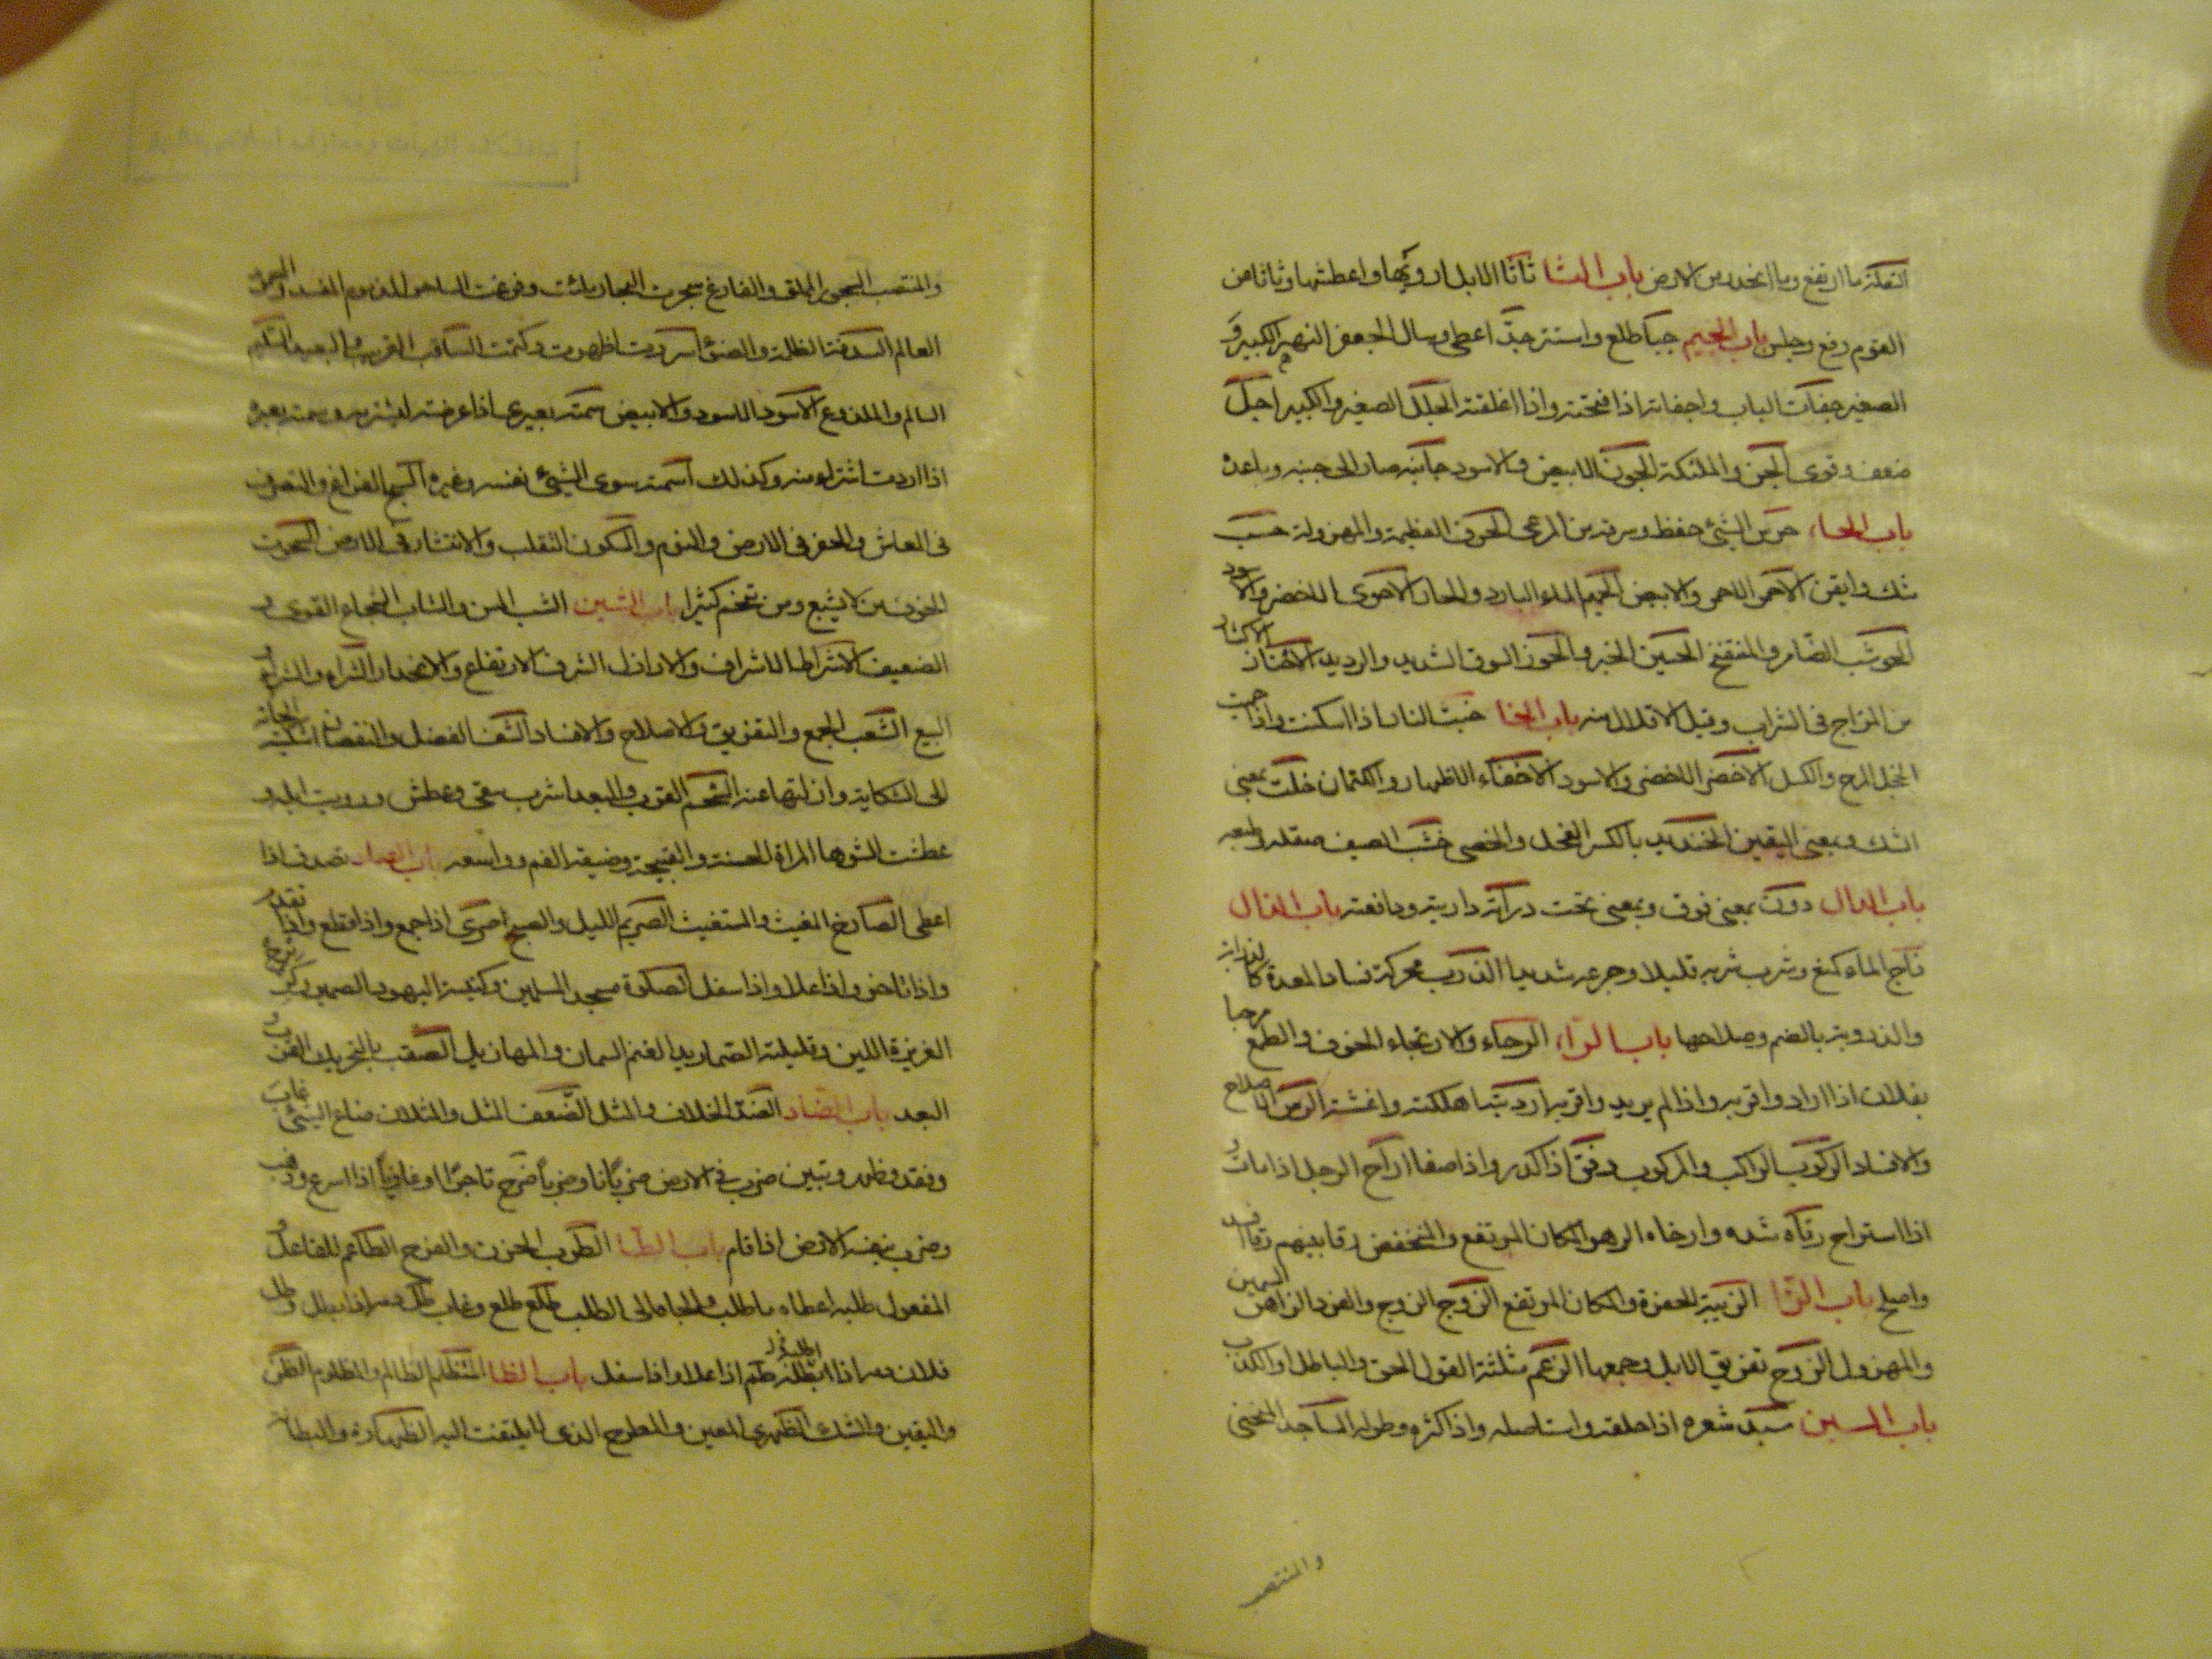 التلعة ما ارتفع وما انحدر من الارض باب الثا ثاثا الابل ارويتها واعطشتها وثاثا من
القوم رفع وجلس باب الجيم جبا طلع واستتر جد اعطى وسال الجعفر النهر الكبير و
الصغير جفات الباب واجفاته اذا فتحته واذا اغلقته الجلل الصغير والكبير
ضعف وقوى الجن والملئكة الجون الابيض والاسود جانبه صار الى جنبه وباعده
باب الحاء حرس الشئ حفظ وسرقه من المرعى الحرف العظيمة والمهزولة حسب
شك وايقن الاحمر الاحمر والابيض الحميم الماء البارد والحار الاحوى الاخضر والاسود
الحوشب الضامر والمنتفخ الحوز السوق الشديد والرويد
من المزاج فى الشراب وقيل الاقلال منه باب الخا خبت النار اذا سكنت واذا حميت
الخجل المرح والكسل الاخضر الاخضر والاسود الاخفاء الاظهار والكتمان خلت بمعنى
الشك وبمعنى اليقين الخنذيذ بالكسر الفحل والخصى خشب السيف صقله وطبعه
باب الدال دون بمعنى فوق وبمعنى تحت دراته داريته ودافعته باب الذال
ذاج الماء كمنع وشرب شربه قليلا وجرعه شديدا الذرب محركة فساد المعدة كالذرابة
والذروبة بالضم وصلاحها باب الراء الرجاء والارتجاء الخوف والطمع مرحبا
بفلان اذا اراد واقربه واذا لم يريد واقربه اهلكته واعشته الرس الاصلاح
والافساد الركوب الراكب والمركوب رنق اذا كدر واذا صفا اراح الرجل اذا مات و
اذا استراح رتاه شده وارخاه الرهو المكان المرتفع والمنخفض رقا بينهم رقا افسد
واصلح باب الزا الزبية الحفرة والمكان المرتفع الزوج الزوج والفرد الزاهق السمين
والمهزول الزوح تفريق الابل وجمعها الزعم مثلثة القول الحق والباطل والكذب
باب السين سبد شعره اذا حلقه واستاصله واذا كثره وطوله الساجد المنحنى
والمنتصب
والمنتصب المسجور المملو والفارغ سجرت البحار ملئت وفرغت
العالم السدفة الظلمة والضوء اسررت اظهرت وكتمت الساقب القريب والبعيد السليم
السالم والملدوغ الاسود الاسود والابيض سمته بعيرى اذا عرضته ليشتريه وسمته بعيره
اذا اردت اشتراءه منه وكذلك استمته سوى الشئ نفسه وغيره السبح الفراغ والتصرف
فى المعاش والحفر فى الارض والنوم والسكون التقلب والانتشار فى الارض المسحوت
الجوف من لا يشبع ومن يتخم كثيرا باب الشين الشب المسن والشاب الشجاع القوى و
الضعيف الاشراط الاشراف والاراذل الشرف الارتفاع والانحدار الشراء والشراء
البيع الشعب الجمع والتفريق والاصلاح والافساد الشف الفضل والنقصان اشكيته الجاته
الى الشكاية وازلتها عنه القرب والبعد اشرب سقى وعطش ورويت ابله و
عطشت الشوها المراة الحسنة والقبيحة وضيقة الفم وواسعه باب الصاد تصدق اذا
اعطى الصارخ المغيث والمستغيث الصريم الليل والصبح صرى اذا جمع واذا قطع واذا تقدم
واذا تاخر واذا علا واذا سفل الصلوة مسجد المسلمين وكنيسة اليهود الصمرد
الغزيرة اللبن وقليلته الصماريد الغنم السمان والمهازيل الصقب بالتحريك القرب و
البعد باب الضاد الضد الخلاف والمثل الضعف المثل والمثلان ضاع الشئ غاب
وفقد وظهر وتبين ضرب فى الارض ضربانا وضربا خرج تاجرا او غازيا اذا اسرع وذهب
وضرب بنفسه الارض اذا قام باب الطا الطرب الحزن والفرح الطاعم للفاعل و
المفعول طلبه اعطاه ما طلب والجاه الى الطلب طلع طلع وغاب طل دمه اذا بطل وطل
فلان دمه اذا ابطله طم اذا علا واذا سفل باب الظا المتظلم الظالم والمظلوم الظن
واليقين والشك الظهرى المعين والمطرح الذى لا يلتفت اليه الظهارة والبطانة